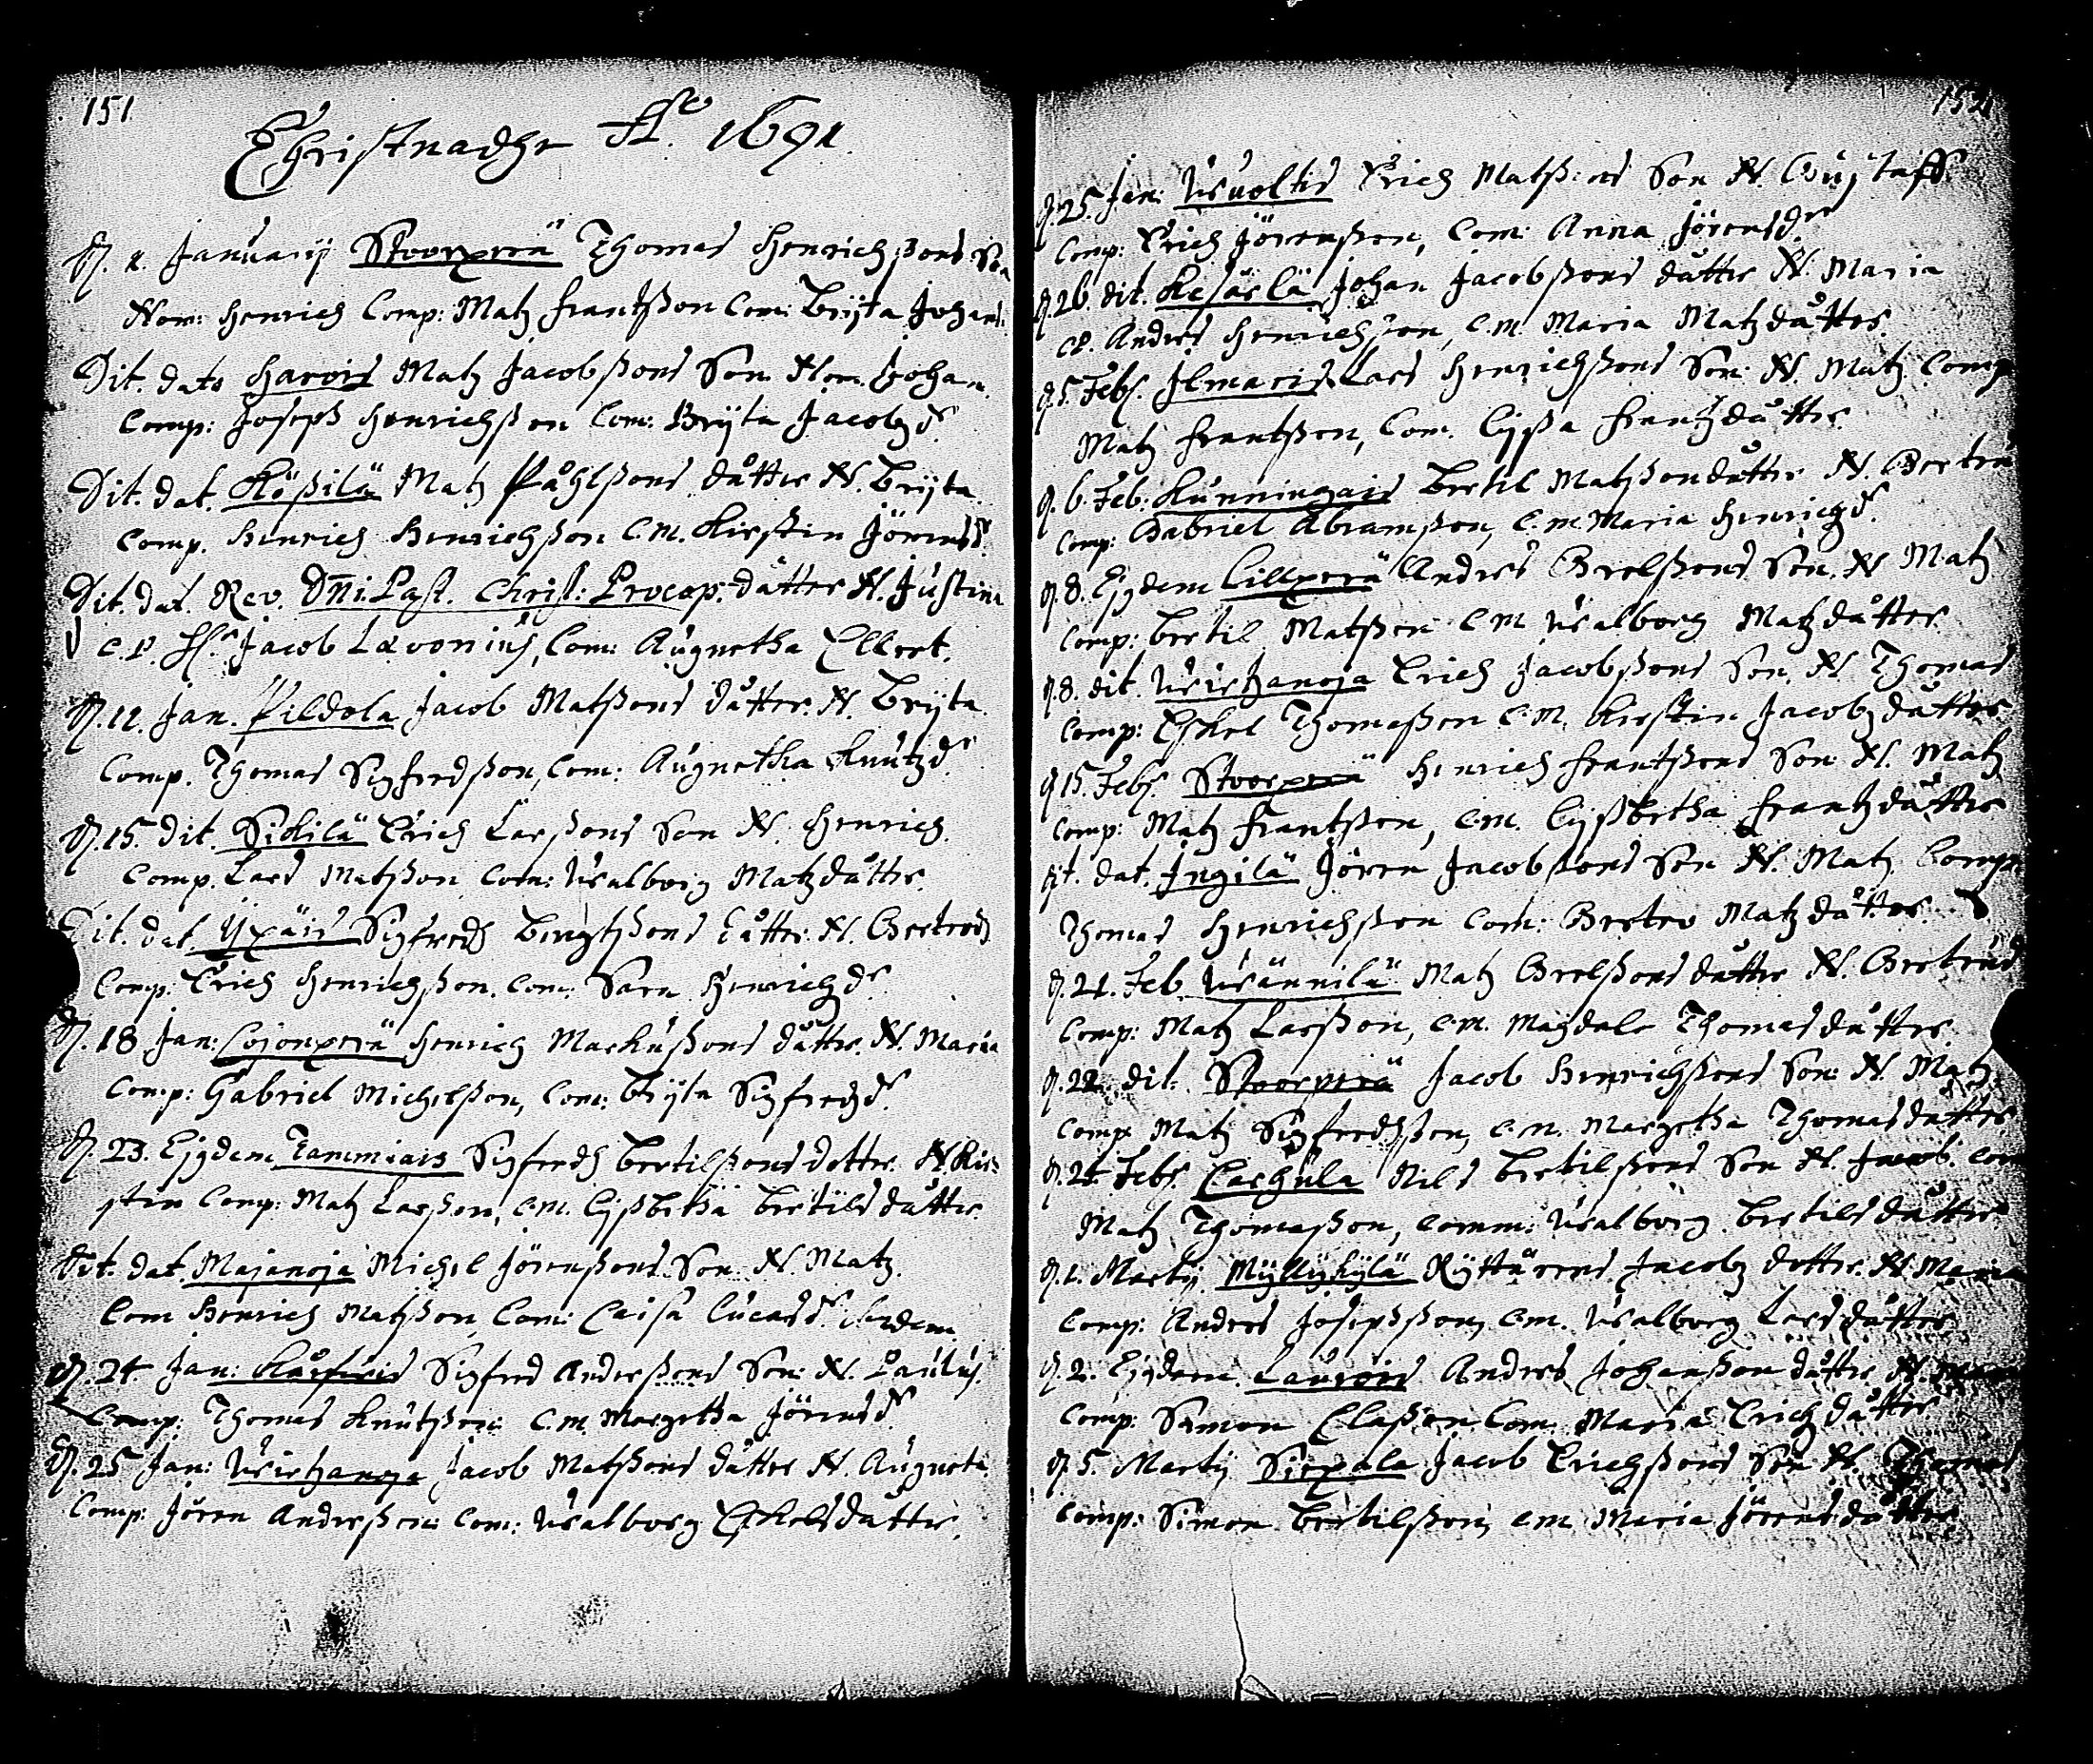 151
Christnadhe A:o 1691.
D. 1. Januarij Stoorperä Thomas Henrichßons Son
Nom: Henrich Comp: Matz Frantzßon Com: Brijta Johans:
Dit. dato Harvis Matz Jacobßons Son Nom. Johan
Comp: Joseph Henrichßon Com: Brijta Jacobzdr.
Dit. dat. Kößilä Matz Påhlßons dåtter N. Brijta.
Comp. Henrich Henrichßon C.M. Kirstin Jörensdr.
Dit. dat. Rev. Dni. Past. Christ: Procop: dåtter N. Justina
C.P. Hr. Jacob Lævonius, Com: Augnetha Ellert.
D. 12. Jan. Pildola Jacob Matßons dåtter N. Brijta
Comp. Thomas Sigfredßon, Com: Augnetha Knutzdr
D. 15. Dit. Sikilä Erich Larßons Son N. Henrich.
Comp. Lars Matßon Com: Walborg Matzdåtter.
Dit. dat. Ypäis Sigfredh Bengtßons dåtter N. Bertrod
Comp: Erich Henrichßon. Com: Sara Henrichzdr
D. 18 Jan: Cojonperä Henrich Markußons dåtter. N. Maria
Comp: Gabriel Michelßon, Com: Brijta Sigfredzdr
D. 23. Ejgdem Tammiais Sigfredh Bertilßons dotter N. Kir=
stin Comp: Matz Larßon, C.M. Lijßbetha Bertils dåtter.
Dit. dat. Majanoja Michel Jörenßons Son N Matz.
Com Henrich Matzßon, Com: Caisa Lucasdr. Ibidem.
D. 24. Jan: Sigfred Anderßons Son: N. Paulus.
Comp: Thomas Knutßon: C.M. Margetha Jörensdr
D. 25 Jan: Wirtzanoja Jacob Matßons dåtter N. Augneta.
Comp: Jören Anderßon: Com: Walborg Eskelsdåtter.
152
D. 25. Jan: Wuoltis Erich Matß:ons Son N. Gustaff.
Comp: Erich Jörenßon, Com: Anna Jörensdr
D. 26. dit. Kesärlä Johan Jacobßons dåtter N. Maria
CP. Anders Henrichßon, C.M. Maria Matzdåtter.
D. 5. Febr. Ilmaris Lars Henrichßons Son: N. Matz Comp
Matz Frantzßon, Com. Lijßa Frantzdåtter.
D. 6. Feb: Kunningais Bertil Matßon dåtter N. Bertru
Comp: Gabriel Abramßon, C.M. Maria Henrichzdr.
D. 8. Ejgdem Lillperä Anders Grelßons Son. N Matz
Comp: Bertil Matßon C M Walborg Matzdåtter
D. 8. dit. Wirtzanoja Erich Jacobßons Son. N. Thomas
Comp: Eskel Thomaßon C.M. Kirstin Jacobzdåtter
D 15. Febr. Stoorperä Henrich Frantzßons Son N. Matz
Comp: Matz Frantzßon, C.M. Lijßbetha Frantzdåtter
Dit. dat. Ingilä Jören Jacobßons Son N. Matz. Comp:
Thomas Henrichßon Com: Bertru Matzdåtter.
D. 21. Feb. Wännilä Matz Grelßons dåtter N. Bertrud
Comp: Matz Larßon, C.M. Magdale Thomasdåtter.
D. 22. dit. Stoorperä Jacob Henrichßons Son: N. Matz
Comp Matz Sigfredhßon, C.M. Margetha Thomasdåtter
D. 24. Febr. Carhula Nils Bertilßons Son N. Jacob. Com
Matz Thomaßon, Comm: Walborg Bertilsdåtter
D. 1. Martij Myllykylä Ryttarens Jacobz dotter. N. Maria
Comp: Anders Josepsson, C.M. Walborg Larsdåtter
D. 2. Ejgdem. Laurois Anders Johanßon dåtter N.
Comp: Simon Claßon Com: Maria Erichzdåtter
D 5. Martij Sirpala Jacob Erichßons Son N. Thomas
Comp: Simon Bertilßon, C.M Maria Jörensdåtter